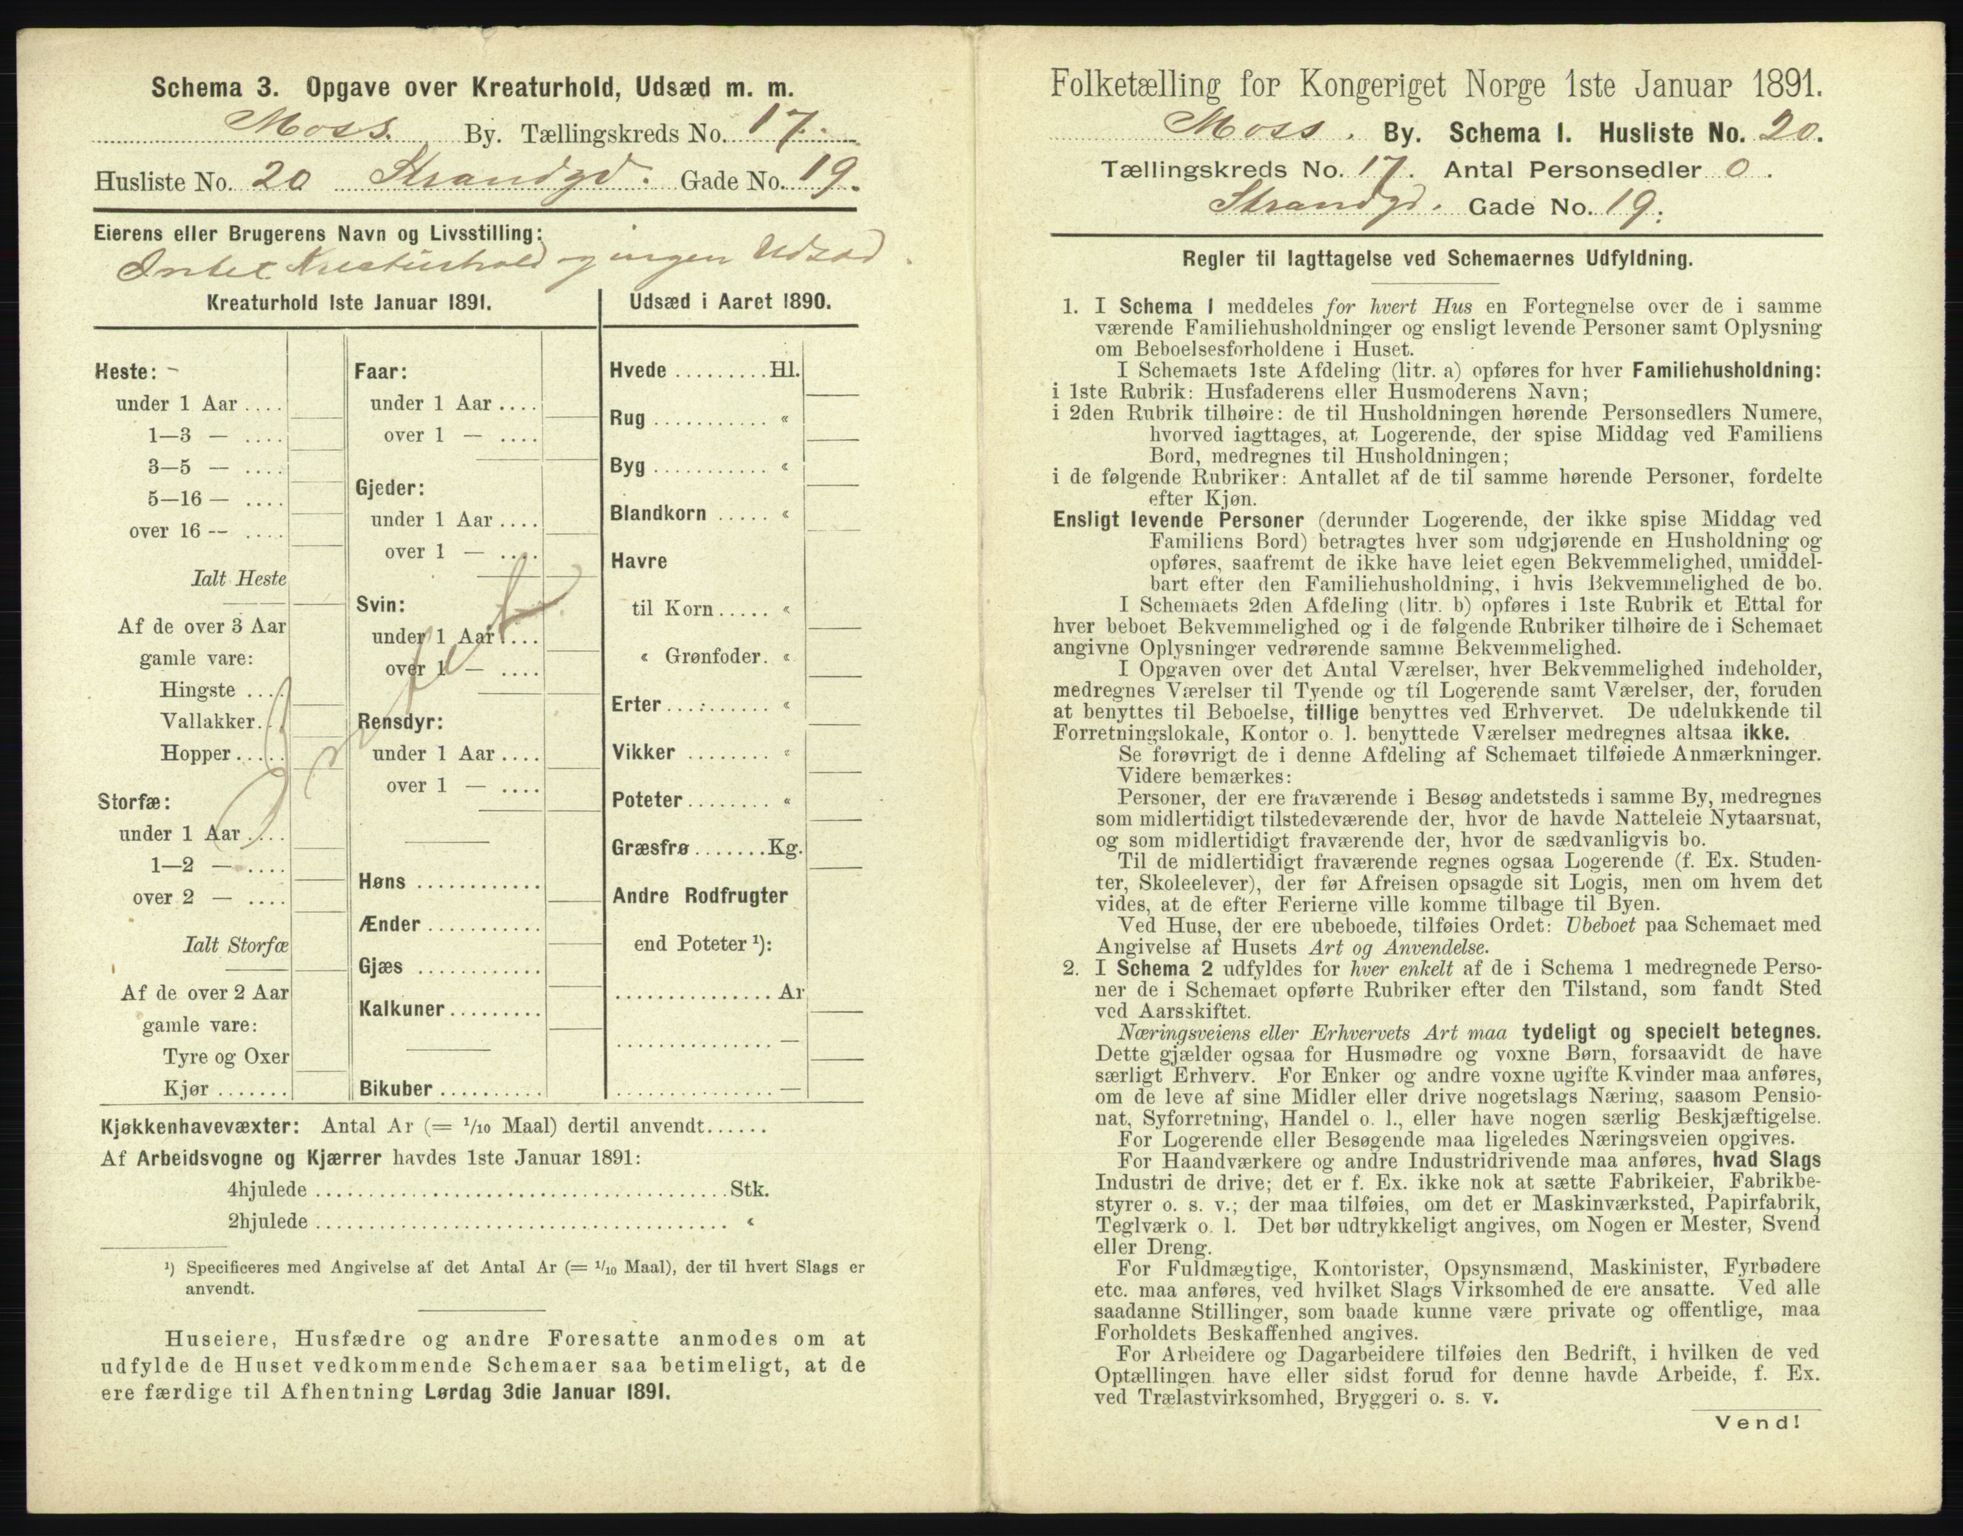 Schema 3. Opgave over Kreaturhold, Udsæd m. m.
Moss. By. Tællingskreds No. 17.
Husliste No. 20 Strandgd. Gade No. 19.
Eierens eller Brugerens Navn og Livsstilling:
Intet Kreaturhold og ingen Udsæd.
Kreaturhold 1ste Januar 1891.
Heste: -
under 1 Aar ....
1—3 — ....
3—5 — ....
5—16 — ....
over 16 -- ....
Ialt Heste
Af de over 3 Aar
gamle vare:
Hingste ....
Vallakker....
Hopper.....
Storfæ:
under 1 Aar ....
1—2 — ....
over 2 — ....
Ialt Storfæ
Af de over 2 Aar
gamle vare:
Tyre og Oxer
Kjør .......
Faar:
under 1 Aar ....
over 1 — ....
Gjeder:
under 1 Aar ....
over 1 — ....
Svin:
under 1 Aar ....
over 1 — ....
Rensdyr:
under 1 Aar ....
over 1 — ....
Høns ............
Ænder ...........
Gjæs ............
Kalkuner.........
Bikuber ..........
Intet
Udsæd i Aaret 1890.
Hvede .........Hl.
Rug ........... «
Byg ........... «
Blandkorn ..... «
Havre
til Korn..... «
« Grønfoder. «
Erter ......... «
Vikker ........ «
Poteter........ «
Græsfrø.......Kg.
Andre Rodfrugter
end Poteter ¹):
............... Ar
............... —
............... —
Kjøkkenhavevæxter: Antal Ar (= 1/10 Maal) dertil anvendt......
Af Arbeidsvogne og Kjærrer havdes 1ste Januar 1891:
4hjulede ........................................Stk.
2hjulede ........................................ «
¹) Specificeres med Angivelse af det Antal Ar (= 1/10 Maal), der til hvert Slags er
anvendt.
Huseiere, Husfædre og andre Foresatte anmodes om at
udfylde de Huset vedkommende Schemaer saa betimeligt, at de
ere færdige til Afhentning Lørdag 3die Januar 1891.
Folketælling for Kongeriget Norge 1ste Januar 1891.
Moss. By. Schema 1. Husliste No. 20.
Tællingskreds No. 17. Antal Personsedler 0.
Strandgd. Gade No. 19.
Regler til Iagttagelse ved Schemaernes Udfyldning.
1. I Schema 1 meddeles for hvert Hus en Fortegnelse over de i samme
værende Familiehusholdninger og ensligt levende Personer samt Oplysning
om Beboelsesforholdene i Huset.
I Schemaets 1ste Afdeling (litr. a) opføres for hver Familiehusholdning:
i 1ste Rubrik: Husfaderens eller Husmoderens Navn;
i 2den Rubrik tilhøire: de til Husholdningen hørende Personsedlers Numere,
hvorved iagttages, at Logerende, der spise Middag ved Familiens
Bord, medregnes til Husholdningen;
i de følgende Rubriker: Antallet af de til samme hørende Personer, fordelte
efter Kjøn.
Ensligt levende Personer (derunder Logerende, der ikke spise Middag ved
Familiens Bord) betragtes hver som udgjørende en Husholdning og
opføres, saafremt de ikke have leiet egen Bekvemmelighed, umiddel-
bart efter den Familiehusholdning, i hvis Bekvemmelighed de bo.
I Schemaets 2den Afdeling (litr. b) opføres i 1ste Rubrik et Ettal for
hver beboet Bekvemmelighed og i de følgende Rubriker tilhøire de i Schemaet
angivne Oplysninger vedrørende samme Bekvemmelighed.
I Opgaven over det Antal Værelser, hver Bekvemmelighed indeholder,
medregnes Værelser til Tyende og til Logerende samt Værelser, der, foruden
at benyttes til Beboelse, tillige benyttes ved Erhvervet. De udelukkende til
Forretningslokale, Kontor o. l. benyttede Værelser medregnes altsaa ikke.
Se forøvrigt de i denne Afdeling af Schemaet tilføiede Anmærkninger.
Videre bemærkes:
Personer, der ere fraværende i Besøg andetsteds i samme By, medregnes
som midlertidigt tilstedeværende der, hvor de havde Natteleie Nytaarsnat,
og som midlertidigt fraværende der, hvor de sædvanligvis bo.
Til de midlertidigt fraværende regnes ogsaa Logerende (f. Ex. Studen-
ter, Skoleelever), der før Afreisen opsagde sit Logis, men om hvem det
vides, at de efter Ferierne ville komme tilbage til Byen.
Ved Huse, der ere ubeboede, tilføies Ordet: Ubeboet paa Schemaet med
Angivelse af Husets Art og Anvendelse.
2. I Schema 2 udfyldes for hver enkelt af de i Schema 1 medregnede Perso-
ner de i Schemaet opførte Rubriker efter den Tilstand, som fandt Sted
ved Aarsskiftet.
Næringsveiens eller Erhvervets Art maa tydeligt og specielt betegnes.
Dette gjælder ogsaa for Husmødre og voxne Børn, forsaavidt de have
særligt Erhverv. For Enker og andre voxne ugifte Kvinder maa anføres,
om de leve af sine Midler eller drive nogetslags Næring, saasom Pensio-
nat, Syforretning, Handel o. l., eller have nogen særlig Beskjæftigelse.
For Logerende eller Besøgende maa ligeledes Næringsveien opgives.
For Haandværkere og andre Industridrivende maa anføres, hvad Slags
Industri de drive; det er f. Ex. ikke nok at sætte Fabrikeier, Fabrikbe-
styrer o. s. v.; der maa tilføies, om det er Maskinværksted, Papirfabrik,
Teglværk o. l. Det bør udtrykkeligt angives, om Nogen er Mester, Svend
eller Dreng.
For Fuldmægtige, Kontorister, Opsynsmænd, Maskinister, Fyrbødere
etc. maa anføres, ved hvilket Slags Virksomhed de ere ansatte. Ved alle
saadanne Stillinger, som baade kunne være private og offentlige, maa
Forholdets Beskaffenhed angives.
For Arbeidere og Dagarbeidere tilføies den Bedrift, i hvilken de ved
Optællingen have eller sidst forud for denne havde Arbeide, f. Ex.
ved Trælastvirksomhed, Bryggeri o. s. v.
Vend!